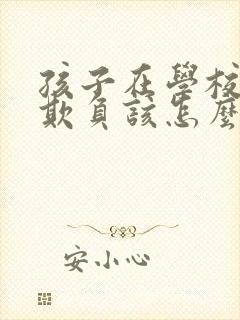 孩子在學校
欺負該怎麼
安小心